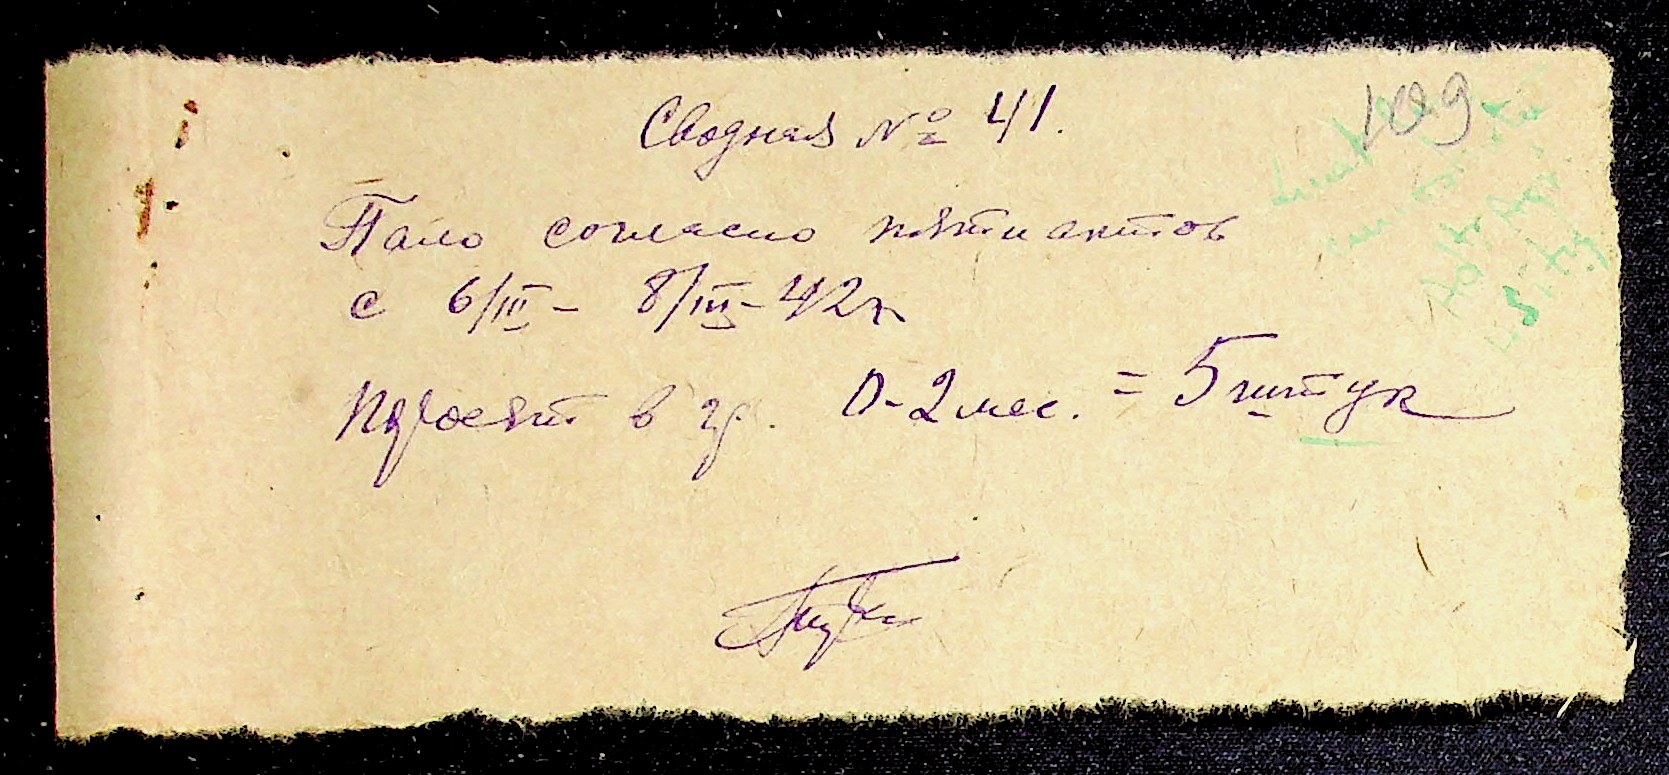 109
Сводная № 41.
Пало согласно пяти актов
с 6/III - 8/III - 42г
Поросят в гр. 0-2 мес. = 5 штук